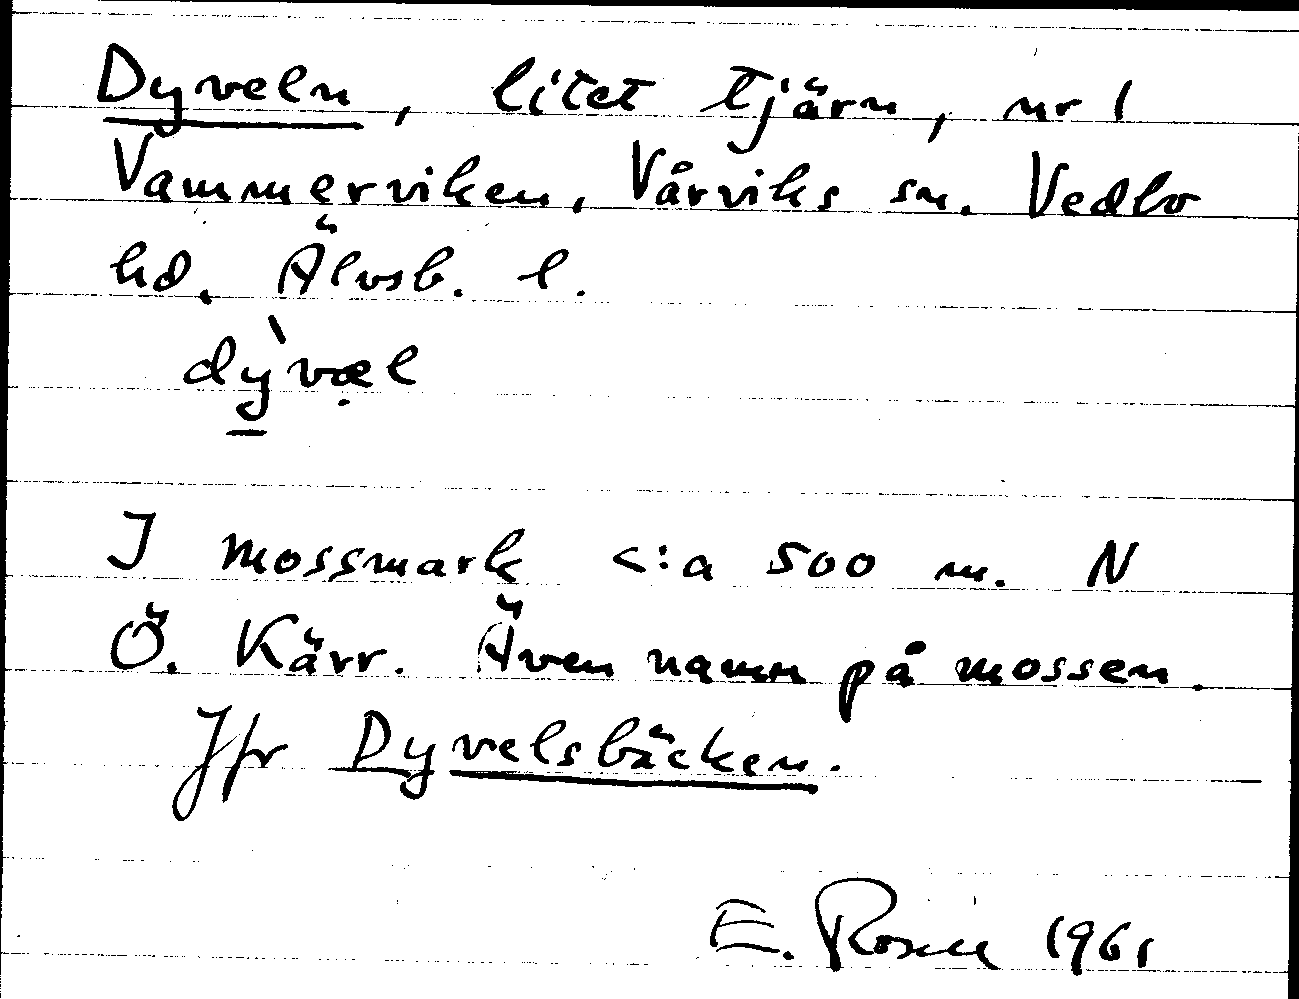 Dyveln, litet tjärn, nr 1
Vammerviken, Vårviks sn. Vedbo
hd. Älvsb. l.
dỳ̱væ̣l
I mossmark c:a 500 m. N
Ö. Kärr. Även namn på mossen.
Jfr Dyvelsbäcken.
E. Rosell 1961